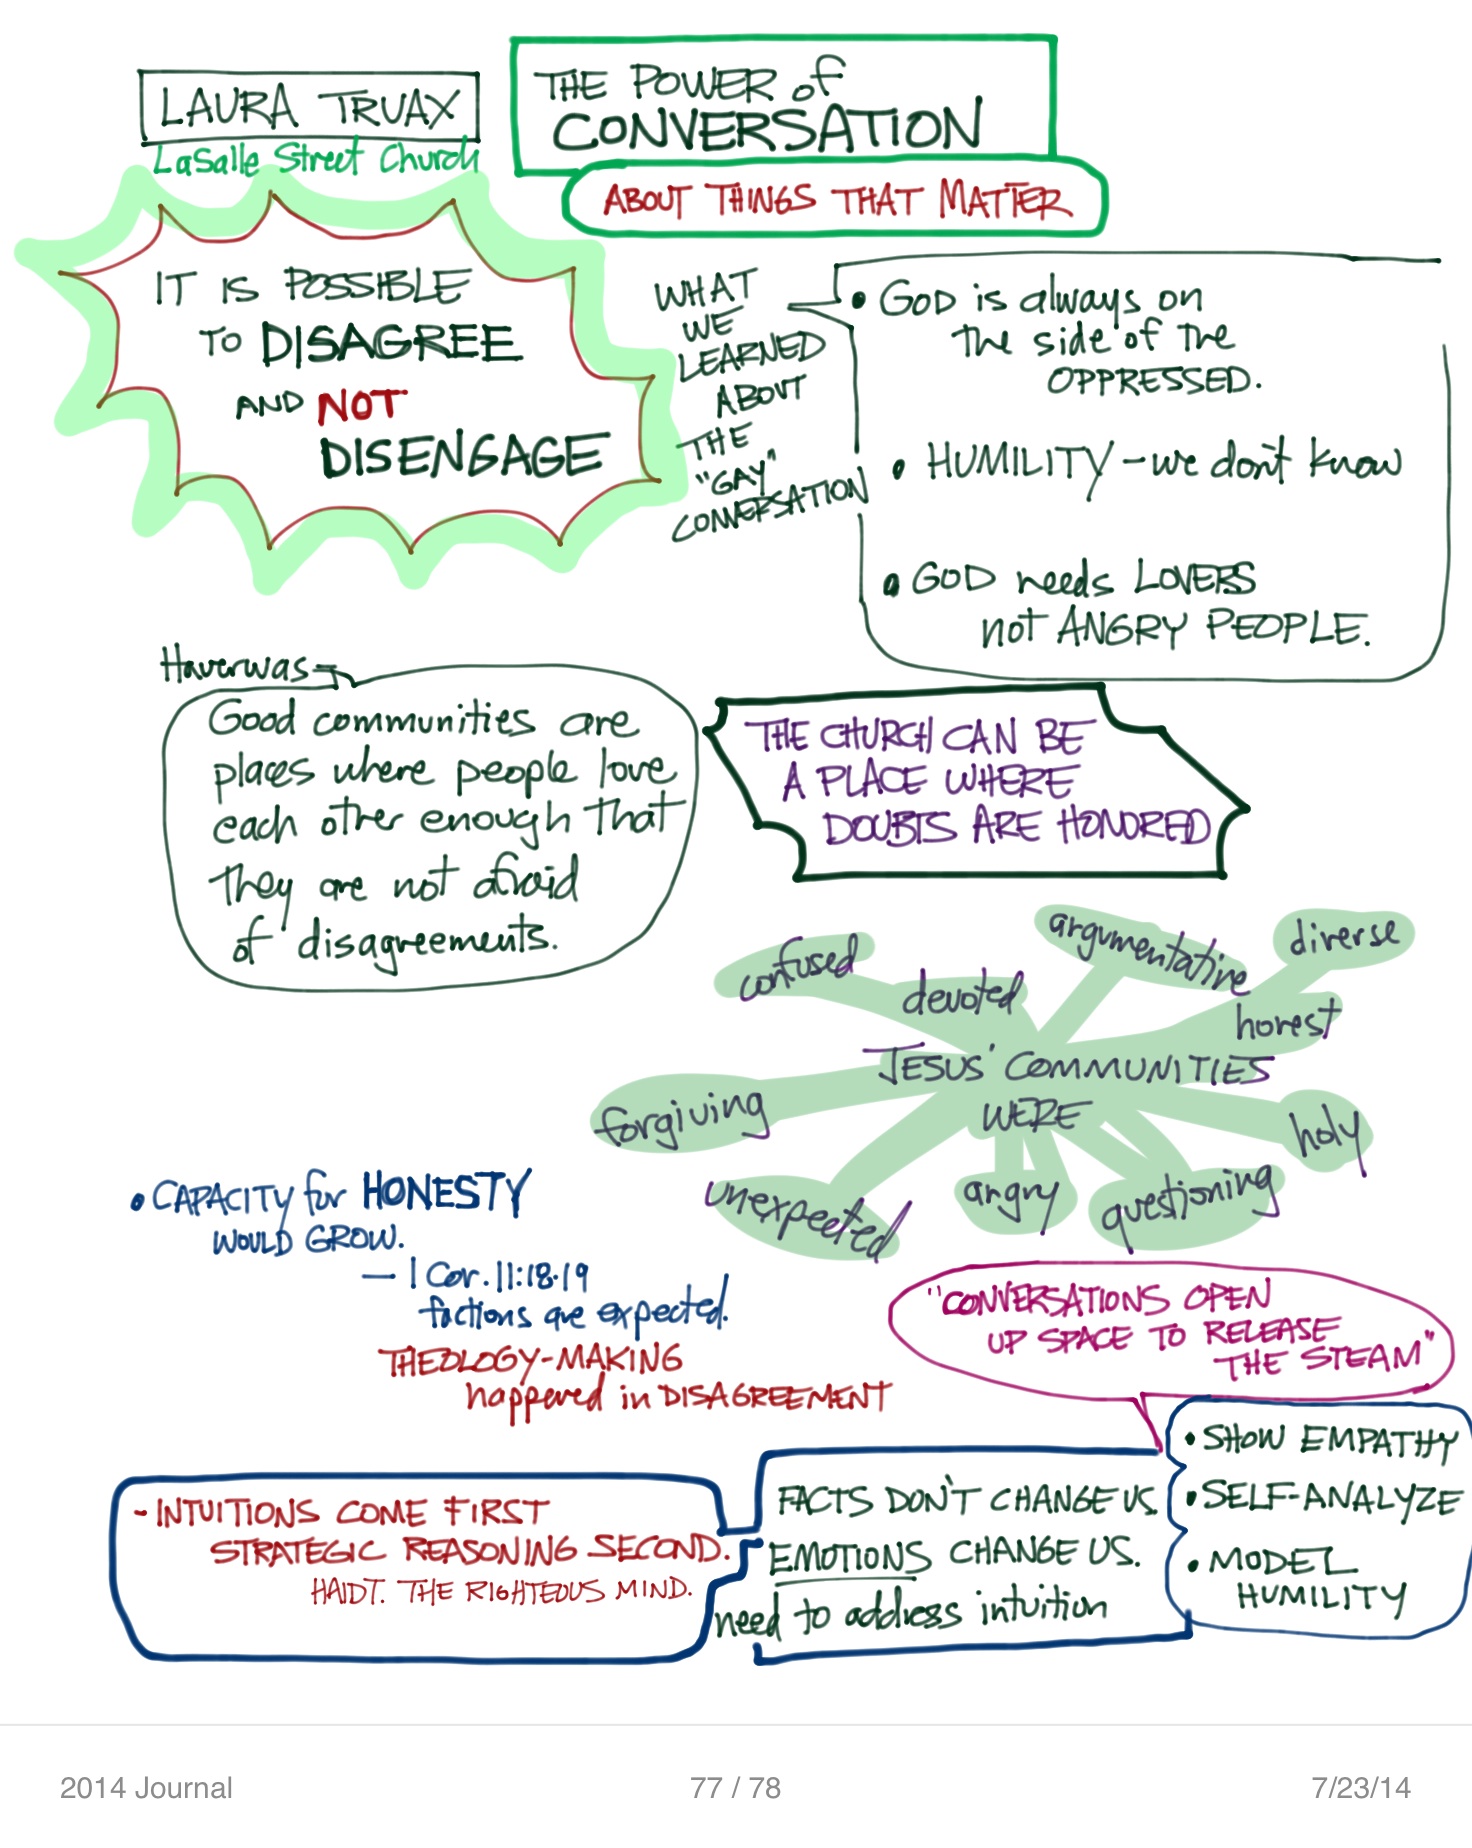 LAURA TRUAX
LaSalle Street Church
THE POWER of
CONVERSATION
ABOUT THINGS THAT MATTER
IT IS POSSIBLE
TO DISAGREE
AND NOT
DISENGAGE
WHAT
WE
LEARNED
ABOUT
THE
"GAY"
CONVERSATION
• GOD is always on
the side of the
OPPRESSED.
• HUMILITY - we don't know
• GOD needs LOVERS
not ANGRY PEOPLE.
Haverwas
Good communities are
places where people love
each other enough that
they are not afraid
of disagreements.
THE CHURCH CAN BE
A PLACE WHERE
DOUBTS ARE HONORED
confused
devoted
argumentative
diverse
honest
JESUS' COMMUNITIES
WERE
forgiving
holy
unexpected
angry
questioning
• CAPACITY for HONESTY
WOULD GROW.
— 1 Cor. 11:18-19
factions are expected.
THEOLOGY-MAKING
happened in DISAGREEMENT
"CONVERSATIONS OPEN
UP SPACE TO RELEASE
THE STEAM"
- INTUITIONS COME FIRST
STRATEGIC REASONING SECOND.
HAIDT. THE RIGHTEOUS MIND.
FACTS DON'T CHANGE US.
EMOTIONS CHANGE US.
need to address intuition
• SHOW EMPATHY
• SELF-ANALYZE
• MODEL
HUMILITY
2014 Journal
77 / 78
7/23/14